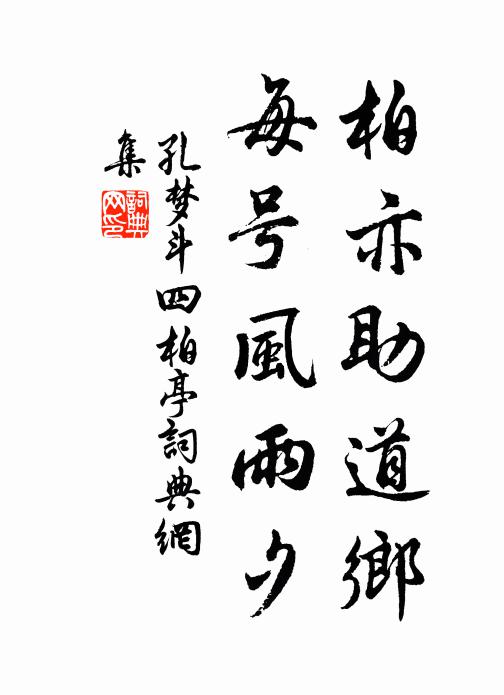 柏亦助道鄉
每号風雨夕
孔梦斗四柏亭詞典網
集
詞典
网印